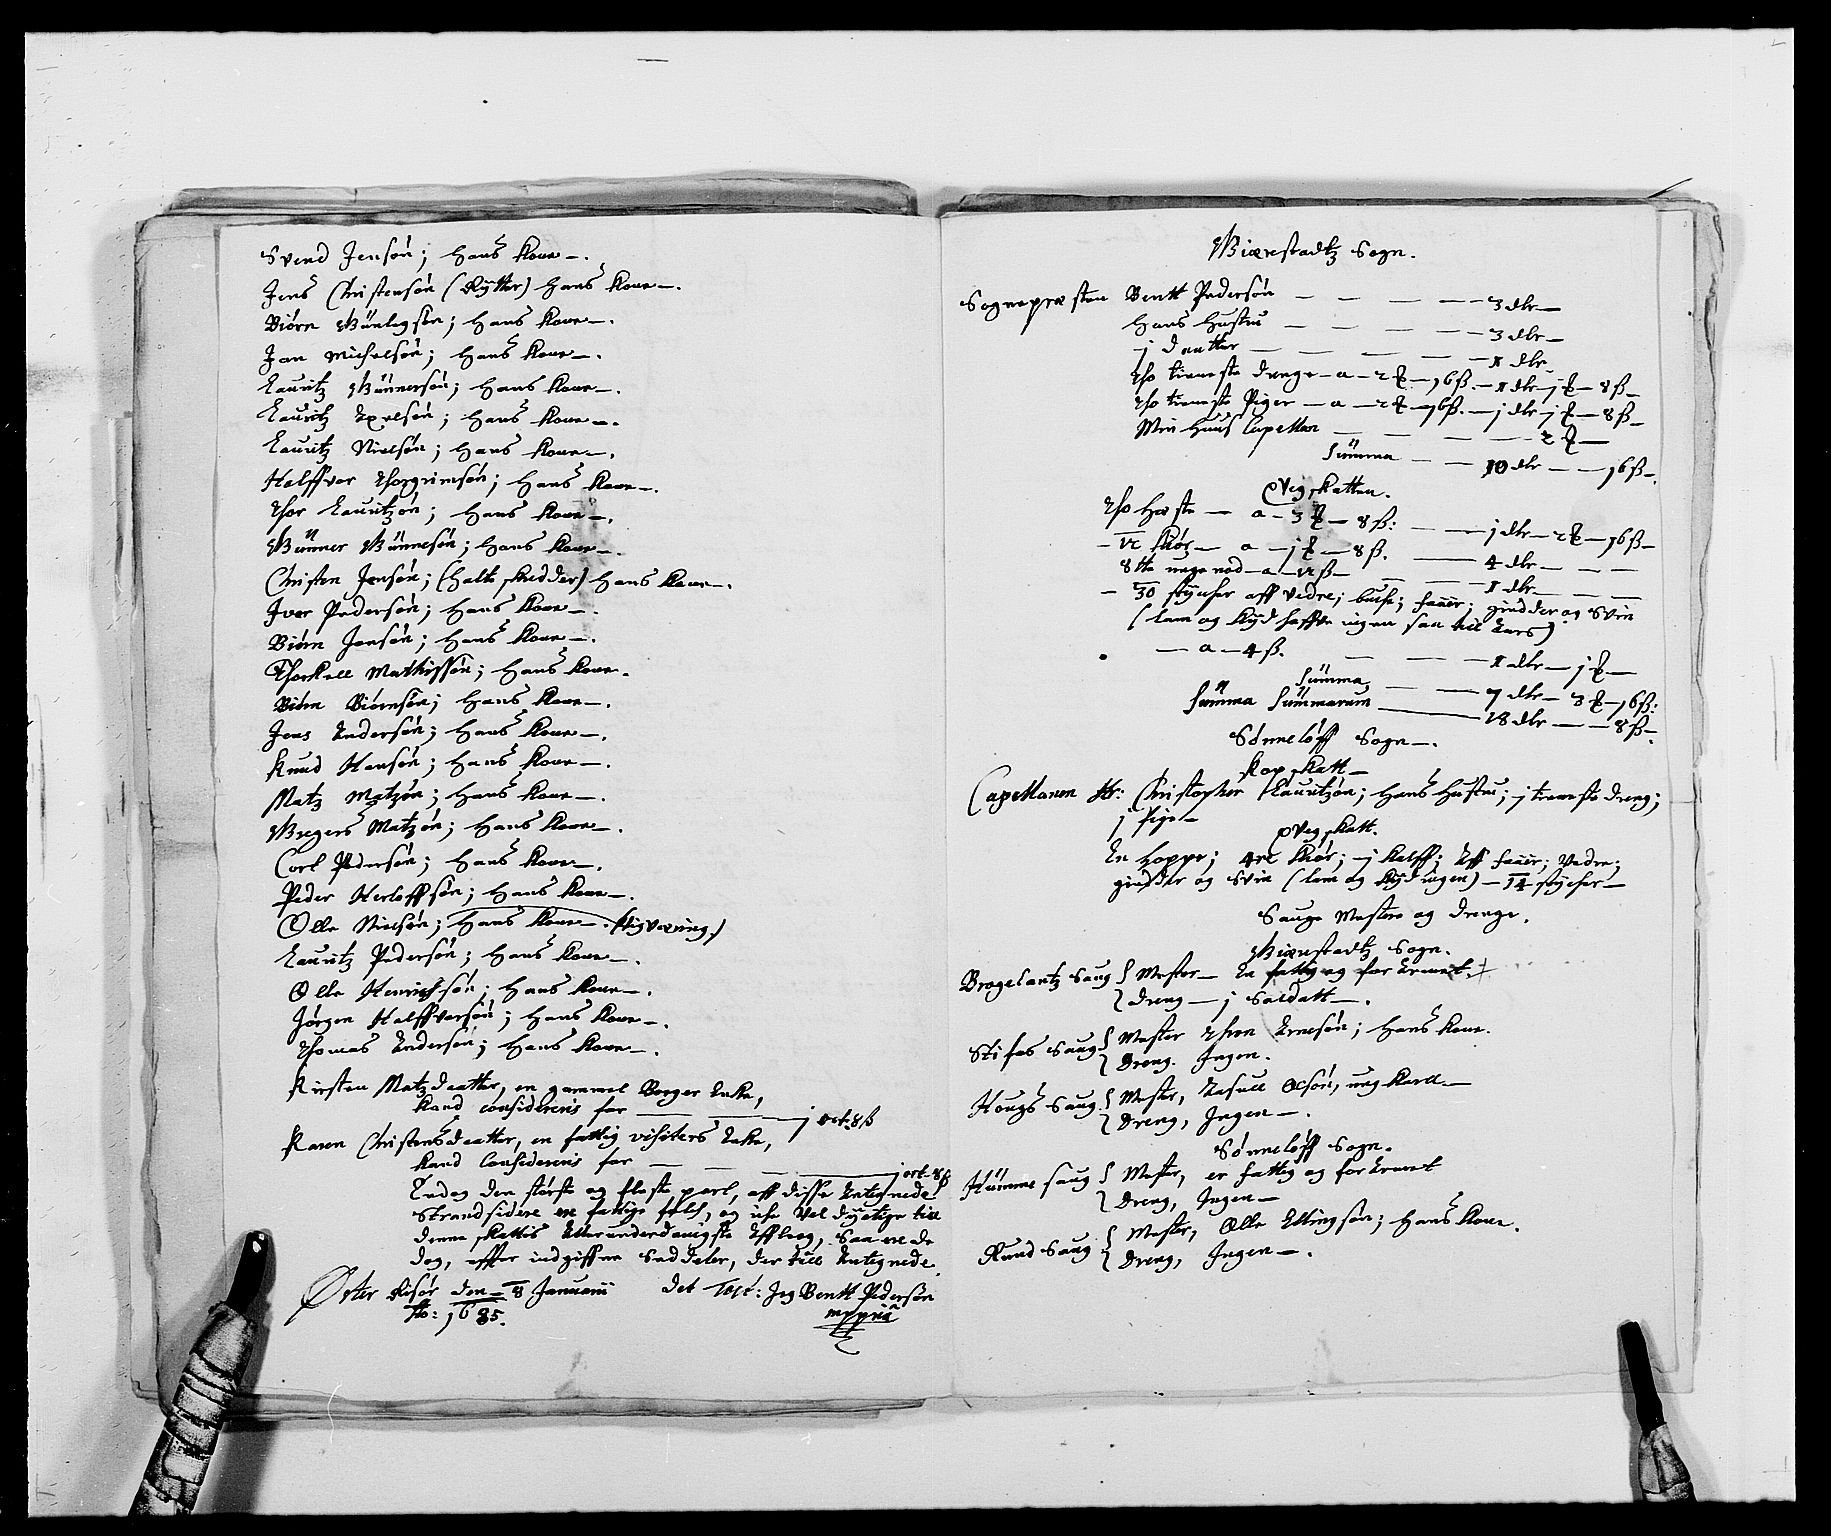 Svend Jensøn; Hans Kone —.
Jens Christensøn (Rÿtter) Hans Kone —.
Biørn Gunlegsøn; Hans Kone —.
Jan Michelsøn; Hans Kone —.
Lauritz Gunnersøn; Hans Kone —.
Lauritz Axelsøn; Hans Kone —.
Lauritz Nielsøn; Hans Kone —.
Halffvor Thorgrimsøn; Hans Kone —.
Thor Lauritzøn; Hans Kone —.
Gunner Gunnesøn; Hans Kone —.
Christen Jensøn; (halte skredder) Hans Kone —.
Iver Pedersøn; Hans Kone —.
Biørn Jensøn; Hans Kone —.
Thorkell Mathissøn; Hans Kone.
Biørn Biørnsøn; Hans Kone —.
Jens Andersøn; Hans Kone —.
Knud Hansøn; Hans Kone —.
Matz Matzøn; Hans Kone —.
Gregers Matzøn; Hans Kone —.
Carl Pedersøn; Hans Kone —.
Peder Herloffsøn; Hans Kone —.
Olle Nielsøn; Hans Kone —.
Lauritz Pedersøn; Hans Kone —.
Olle Henrichsøn; Hans Kone —.
Jørgen Halffvorsøn; Hans Kone —.
Thomas Andersøn; Hans Kone —.
Kirsten Matzdaatter, en gammel Borger Enke,
Kand considereris for — — j ort. 8 ß
Karen Christensdaatter, en fattig visiters Enke,
Kand Considereris for — — — j ort. 8 ß
Endog den største og fleste part, aff disse Antegnede
Strandsidere ere fattige folch, og iche vel dÿgtige till
denne skattis allerunderdanigste afflegg, saa ere de
dog, effter indgiffne Sedeler, her till antegnede.
Øster Riisøer den 8 Januarii det Test: Jeg Bentt Pedersøn
Ao: 1685. mppria
Gierrestadtz Sogn.
Sognepresten Bentt Pedersøn — — — — 3 dlr —
Hans Hustru — — — — 3 dlr —
j daatter — — — — 1 dlr.
Tho tieneste drenge — a — 2 — 16 ß. — 1 dlr — j — 8 ß —
Tho tieneste Piger — a — 2 — 16 ß. — j dlr — j — 8 ß —
Min Huus Capellan — — — 2 —
Summa — — 10 dlr — — 16 ß —.
Qvegskatten.
Tho Heste — a — 3 — 8 ß: — — j dlr — 2 — 16 ß —
12 Kiør — a — j — 8 ß. — 4 dlr — — —
8tte unge nød — a — 12 ß — — 1 dlr — — —
— 30 stÿcher aff Vedre; buche; faaer; gieedder og Sviin
(lam og Kid haffve ingen saa till Aars)
— a — 4 ß. — — 1 dlr — j —
Summa — — 7 dlr — 3 — 16 ß:
Summa Summarum — 18 dlr — — 8 ß —.
Sønneløff Sogn —.
Kopskatt —
Capellanen Hr: Christopher Lauritzøn; Hans Hustru; j tieneste dreng;
j Pige —
Qvegskatt.
En hoppe; 4re Kiør; j Kalff; Aff faaer; Vedre;
giedder og Sviin (lam og Kid ingen) — 14 stÿcher —
Sauge Mestere og drenge.
Gierrestadtz Sogn.
Brøgelantz Saug { Mester — En fattig og forarmet.
{ dreng — j Soldatt —.
Stifos Saug { Mester Thron Arnesøn; Hans Kone.
{ Dreng. Ingen.
Hougs Saug { Mester, Olsøn, ung Karll —
{ Dreng, Ingen —.
Sønneløff Sogn.
Humme Saug { Mester, er fattig og forarmet
{ Dreng, Ingen —
Rund Saug { Mester, Olle Ellingsøn; Hans Kone.
{ Dreng, Ingen —.